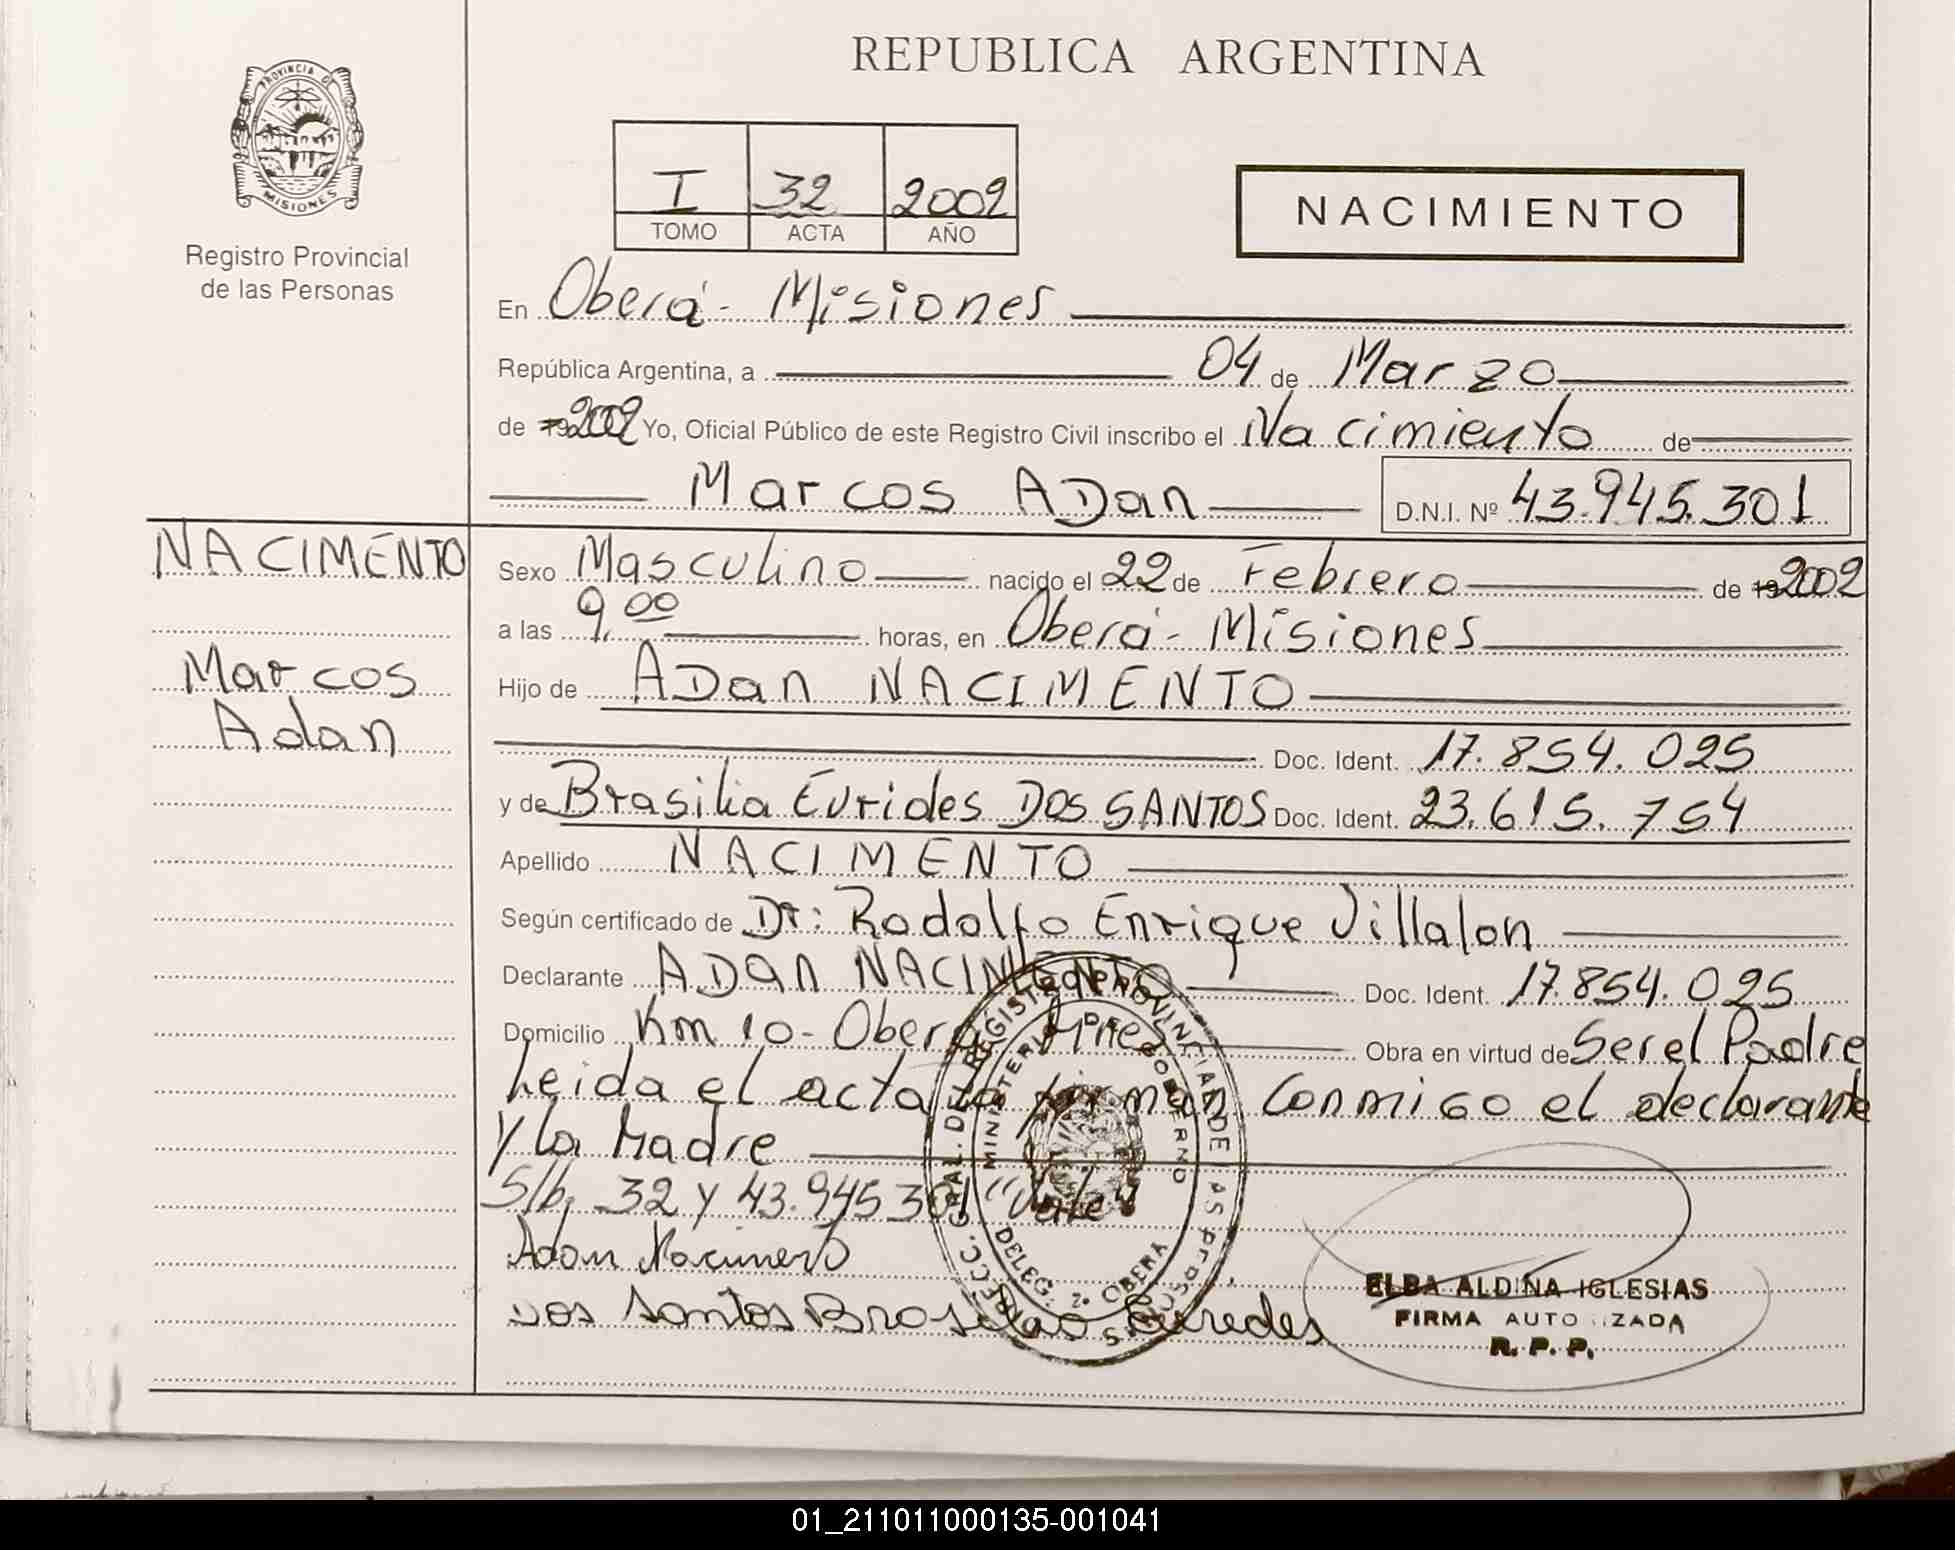 PROVINCIA DE
MISIONES
Registro Provincial
de las Personas
REPUBLICA ARGENTINA
I 32 2002
TOMO ACTA AÑO
NACIMIENTO
En Oberá - Misiones
República Argentina, a 04 de Marzo
de 2002 Yo, Oficial Público de este Registro Civil inscribo el Nacimiento de
Marcos ADan D.N.I. Nº 43.945.301
NACIMENTO
Marcos
Adan
Sexo Masculino nacido el 22 de Febrero de 2002
a las 9,00 horas, en Oberá - Misiones
Hijo de ADan NACIMENTO
Doc. Ident. 17.854.025
y de Brasilia Eurides DOS SANTOS Doc. Ident. 23.615.754
Apellido NACIMENTO
Según certificado de Dr: Rodolfo Enrique Villalon
Declarante ADan NACIMENTO Doc. Ident. 17.854.025
Domicilio Km 10 - Oberá Mnes Obra en virtud de Ser el Padre
Leida el acta la firman Conmigo el declarante
y La Madre
S/b, 32 y 43.945.301 "Vale"
Adan Nacimento
Dos Santos Brasilia Eurides
DIRECC. GRAL. DEL REGISTRO PROVINCIAL DE LAS PERSONAS
MINISTERIO DE GOBIERNO
DELEG. 2ª OBERA
ELBA ALDINA IGLESIAS
FIRMA AUTORIZADA
R. P. P.
01_211011000135-001041